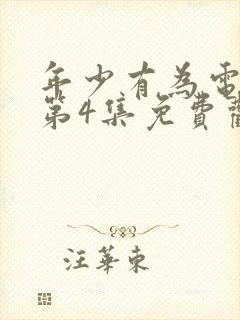 年少有為電
第4集免費
汪華東